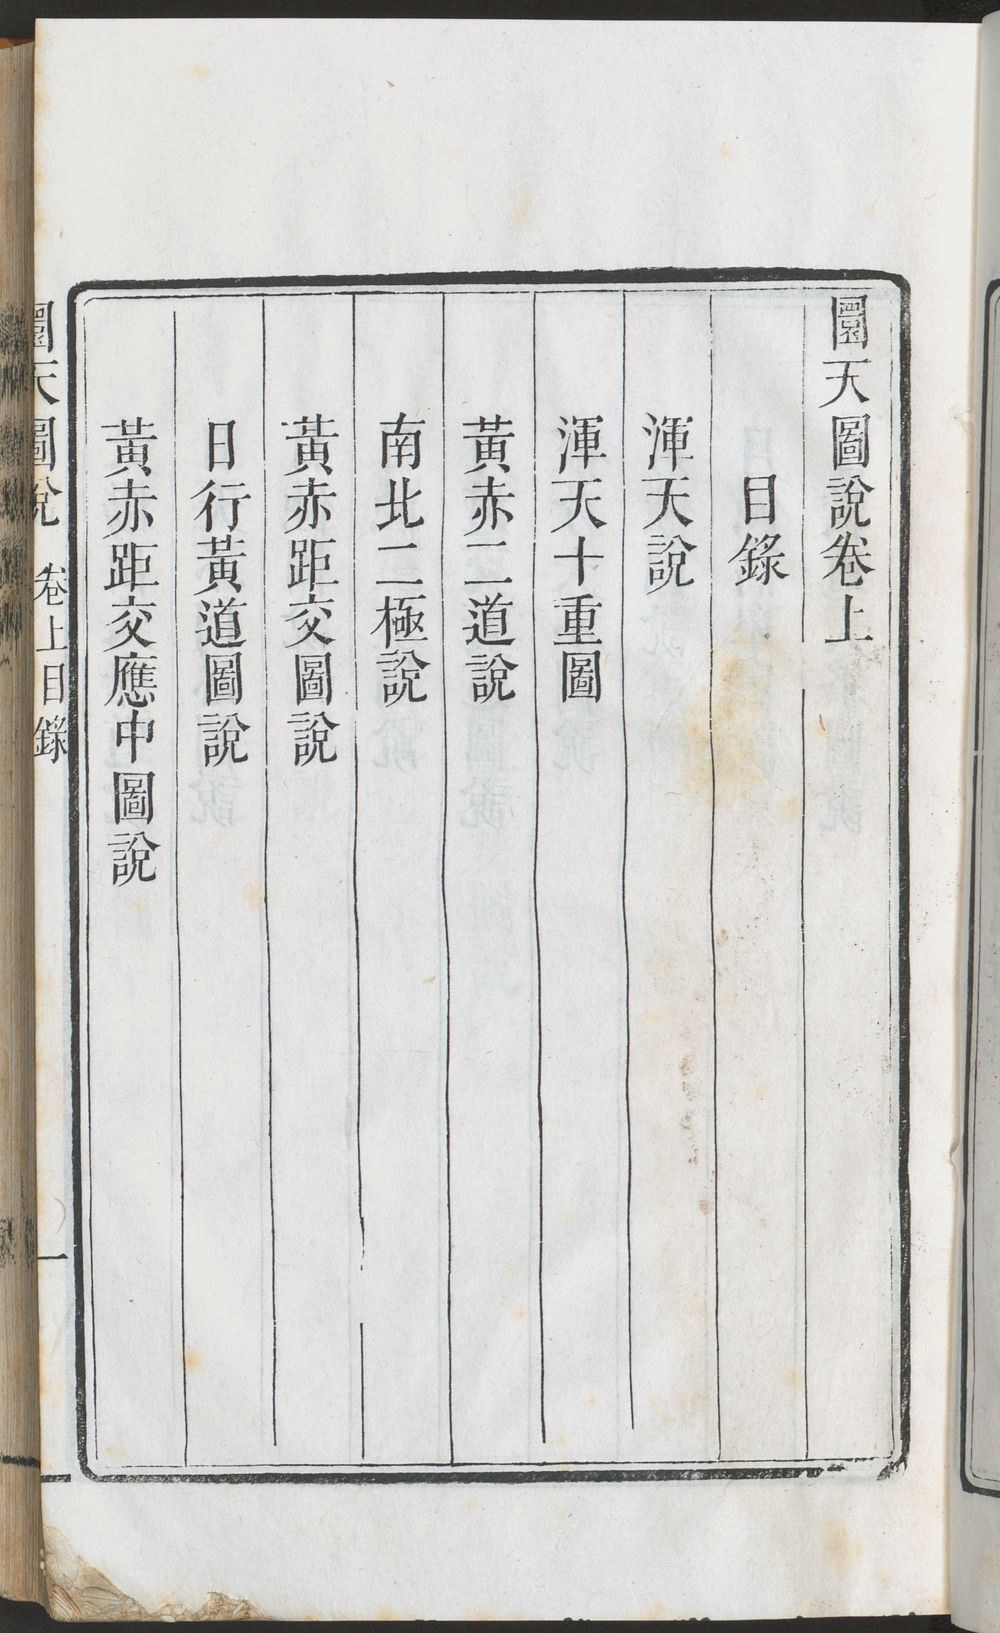 圜天圖說卷上
目錄
渾天說
渾天十重圖
黃赤二道說
南北二極說
黃赤距交圖說
日行黃道圖說
黃赤距交應中圖說
圜天圖說 卷上目錄 一